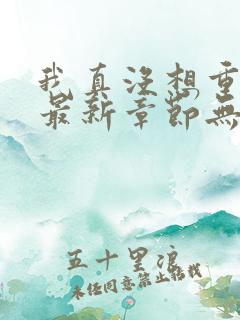 我真没想重
最新章节无
五十里浪
未经同意禁止转载